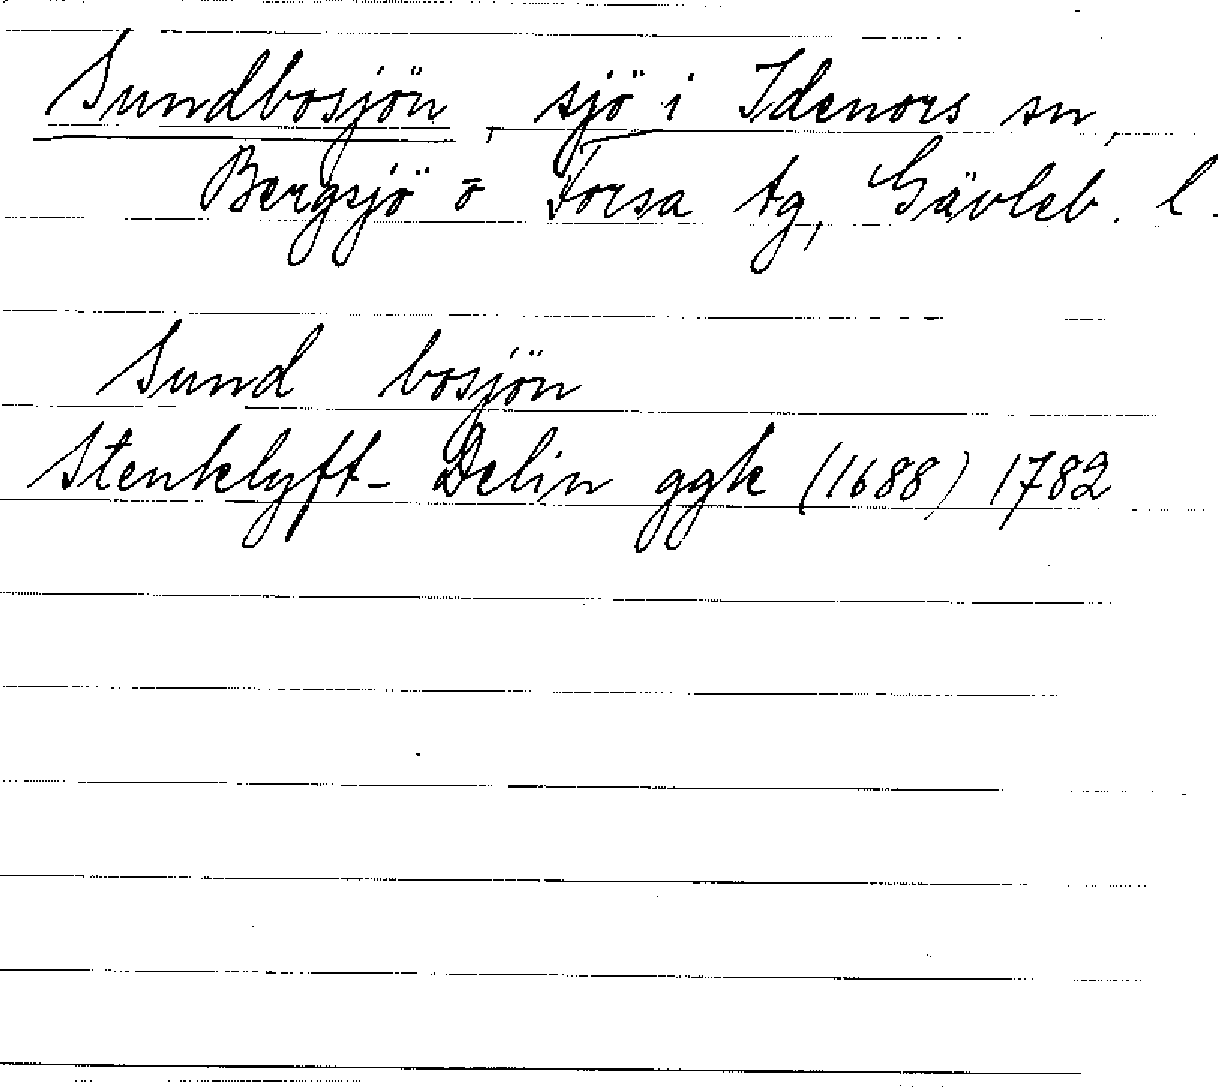 Sundbosjön, sjö i Idenors sn,
Bergsjö o Forsa tg, Gävleb. l.
Sund bosjön
Stenklyft- Delin ggk (1688) 1782